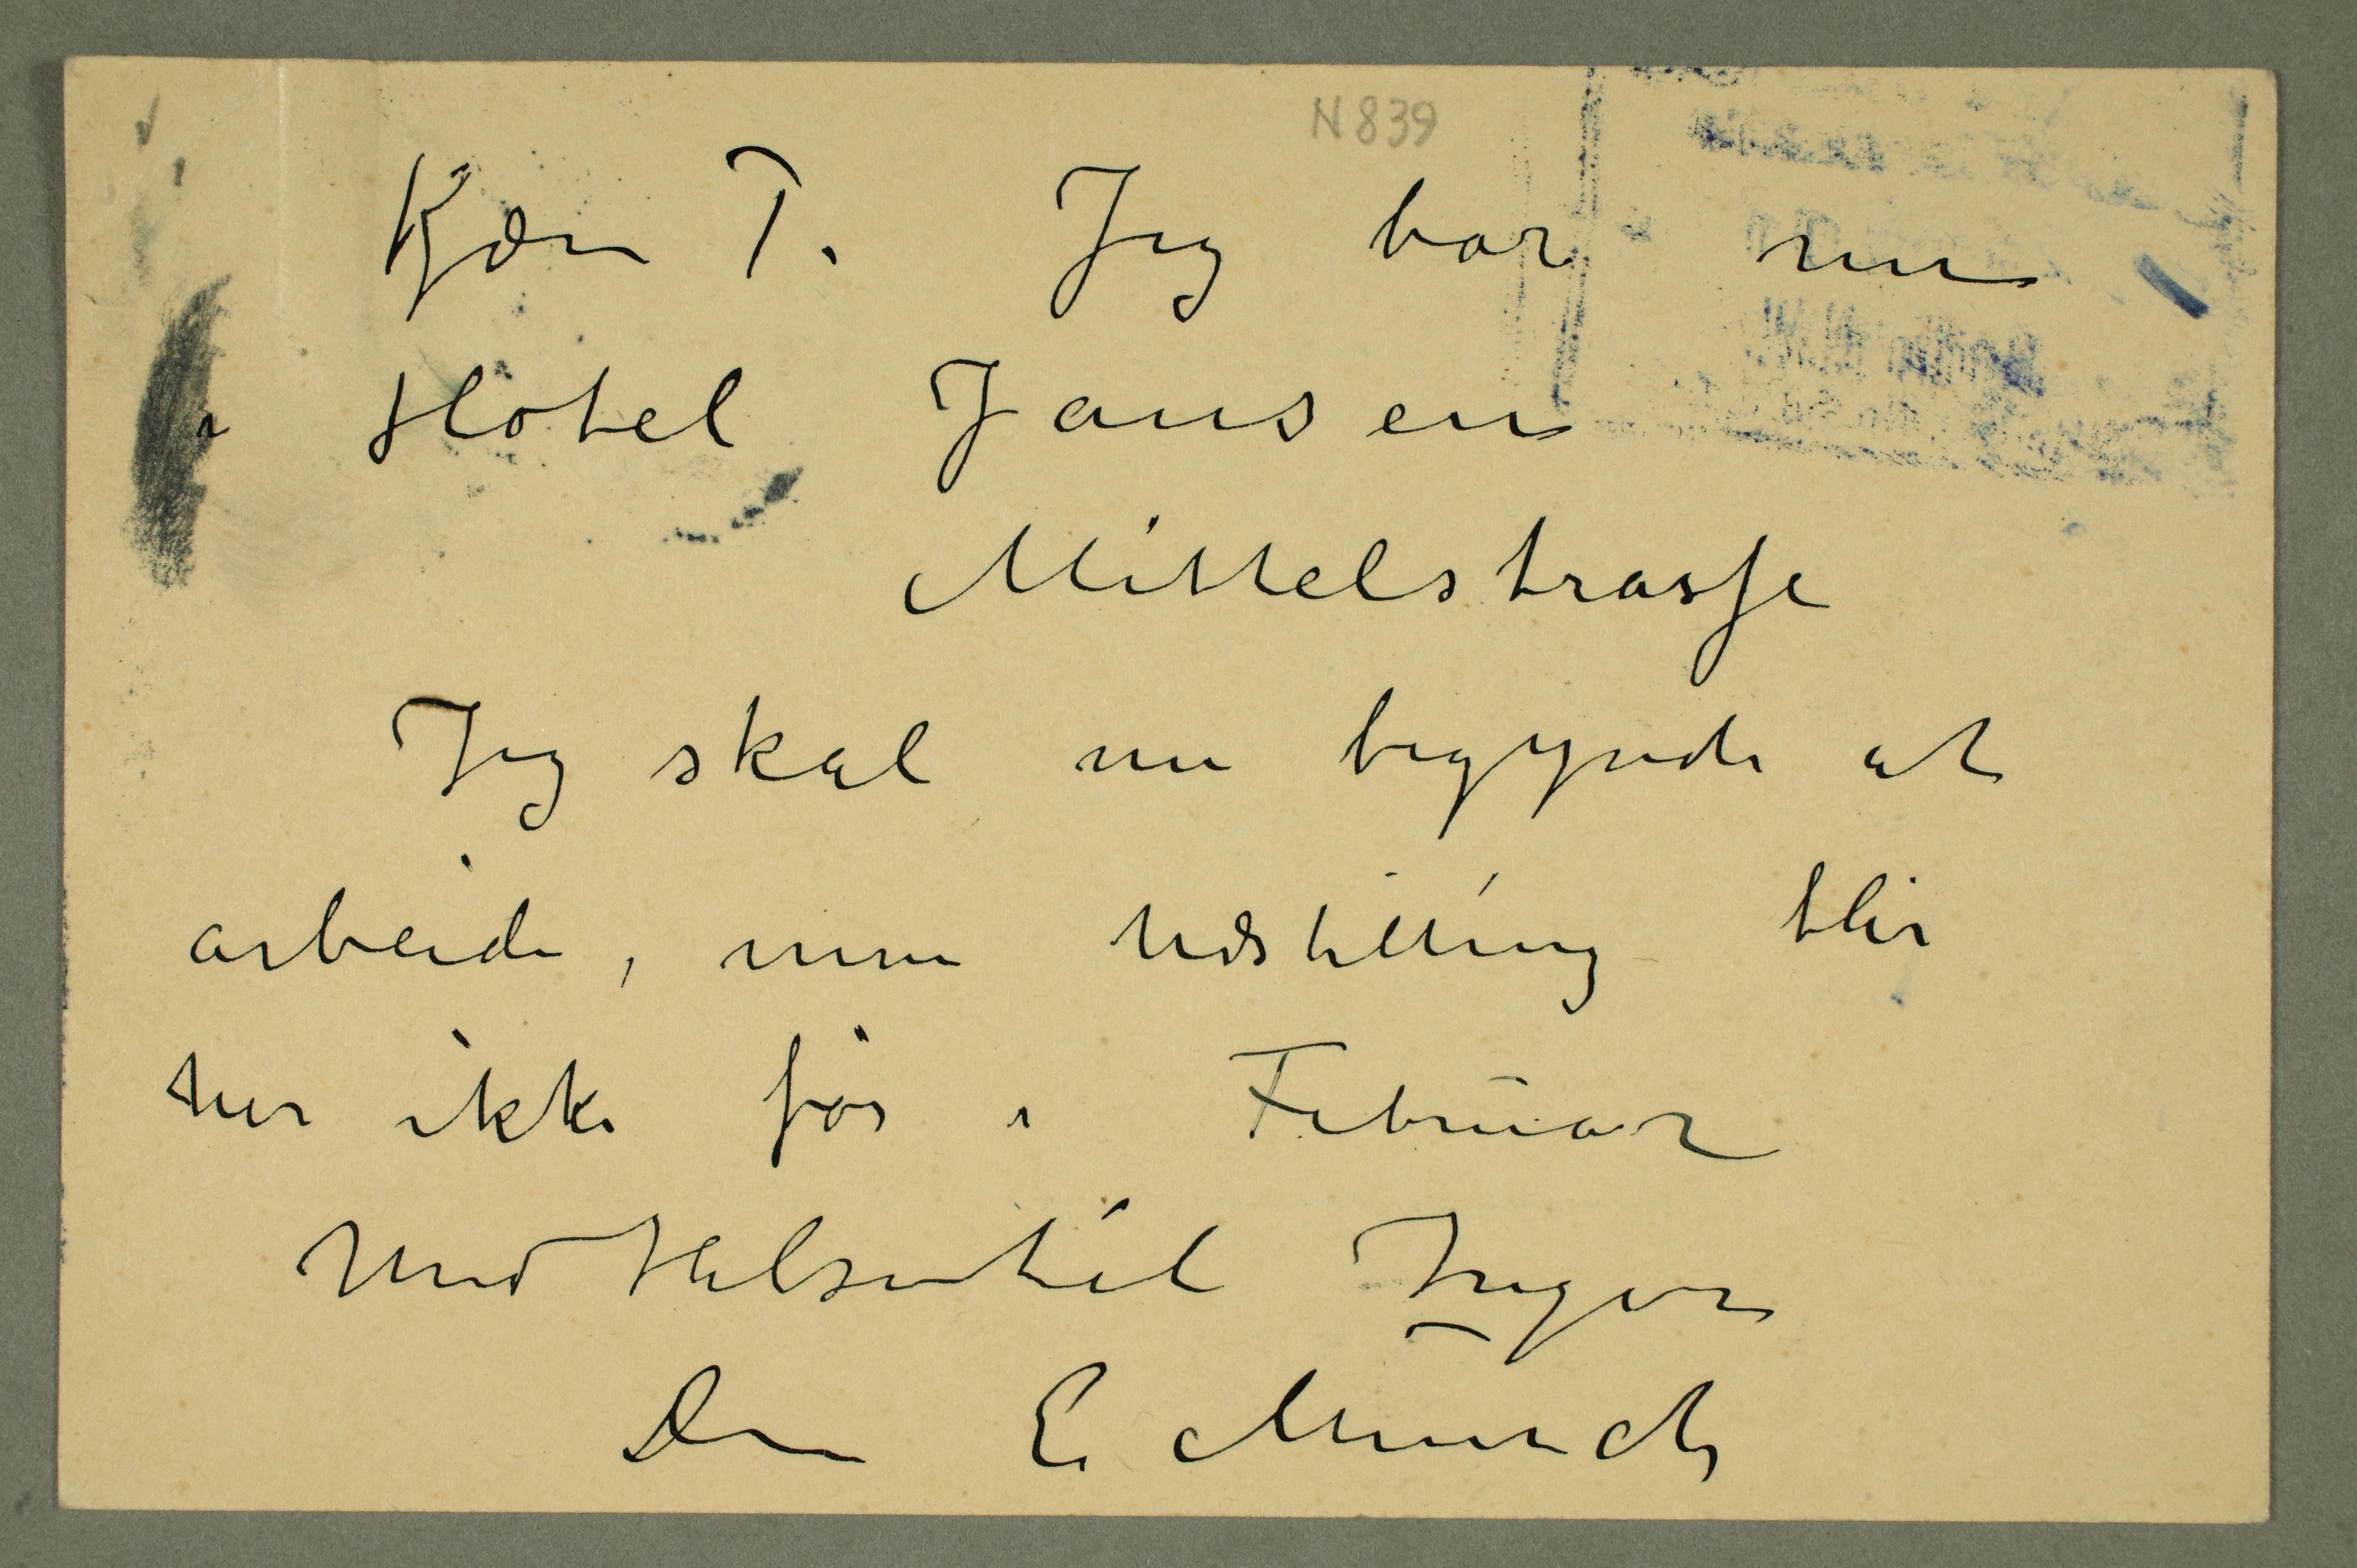 N 839
Kjære T. Jeg bor nu
i Hotel Jansen
Mittelstrasse
Jeg skal nu begynde at
arbeide, min Udstilling blir
her ikke før i Februar
Med Hilsen til Inger
Din E Munch